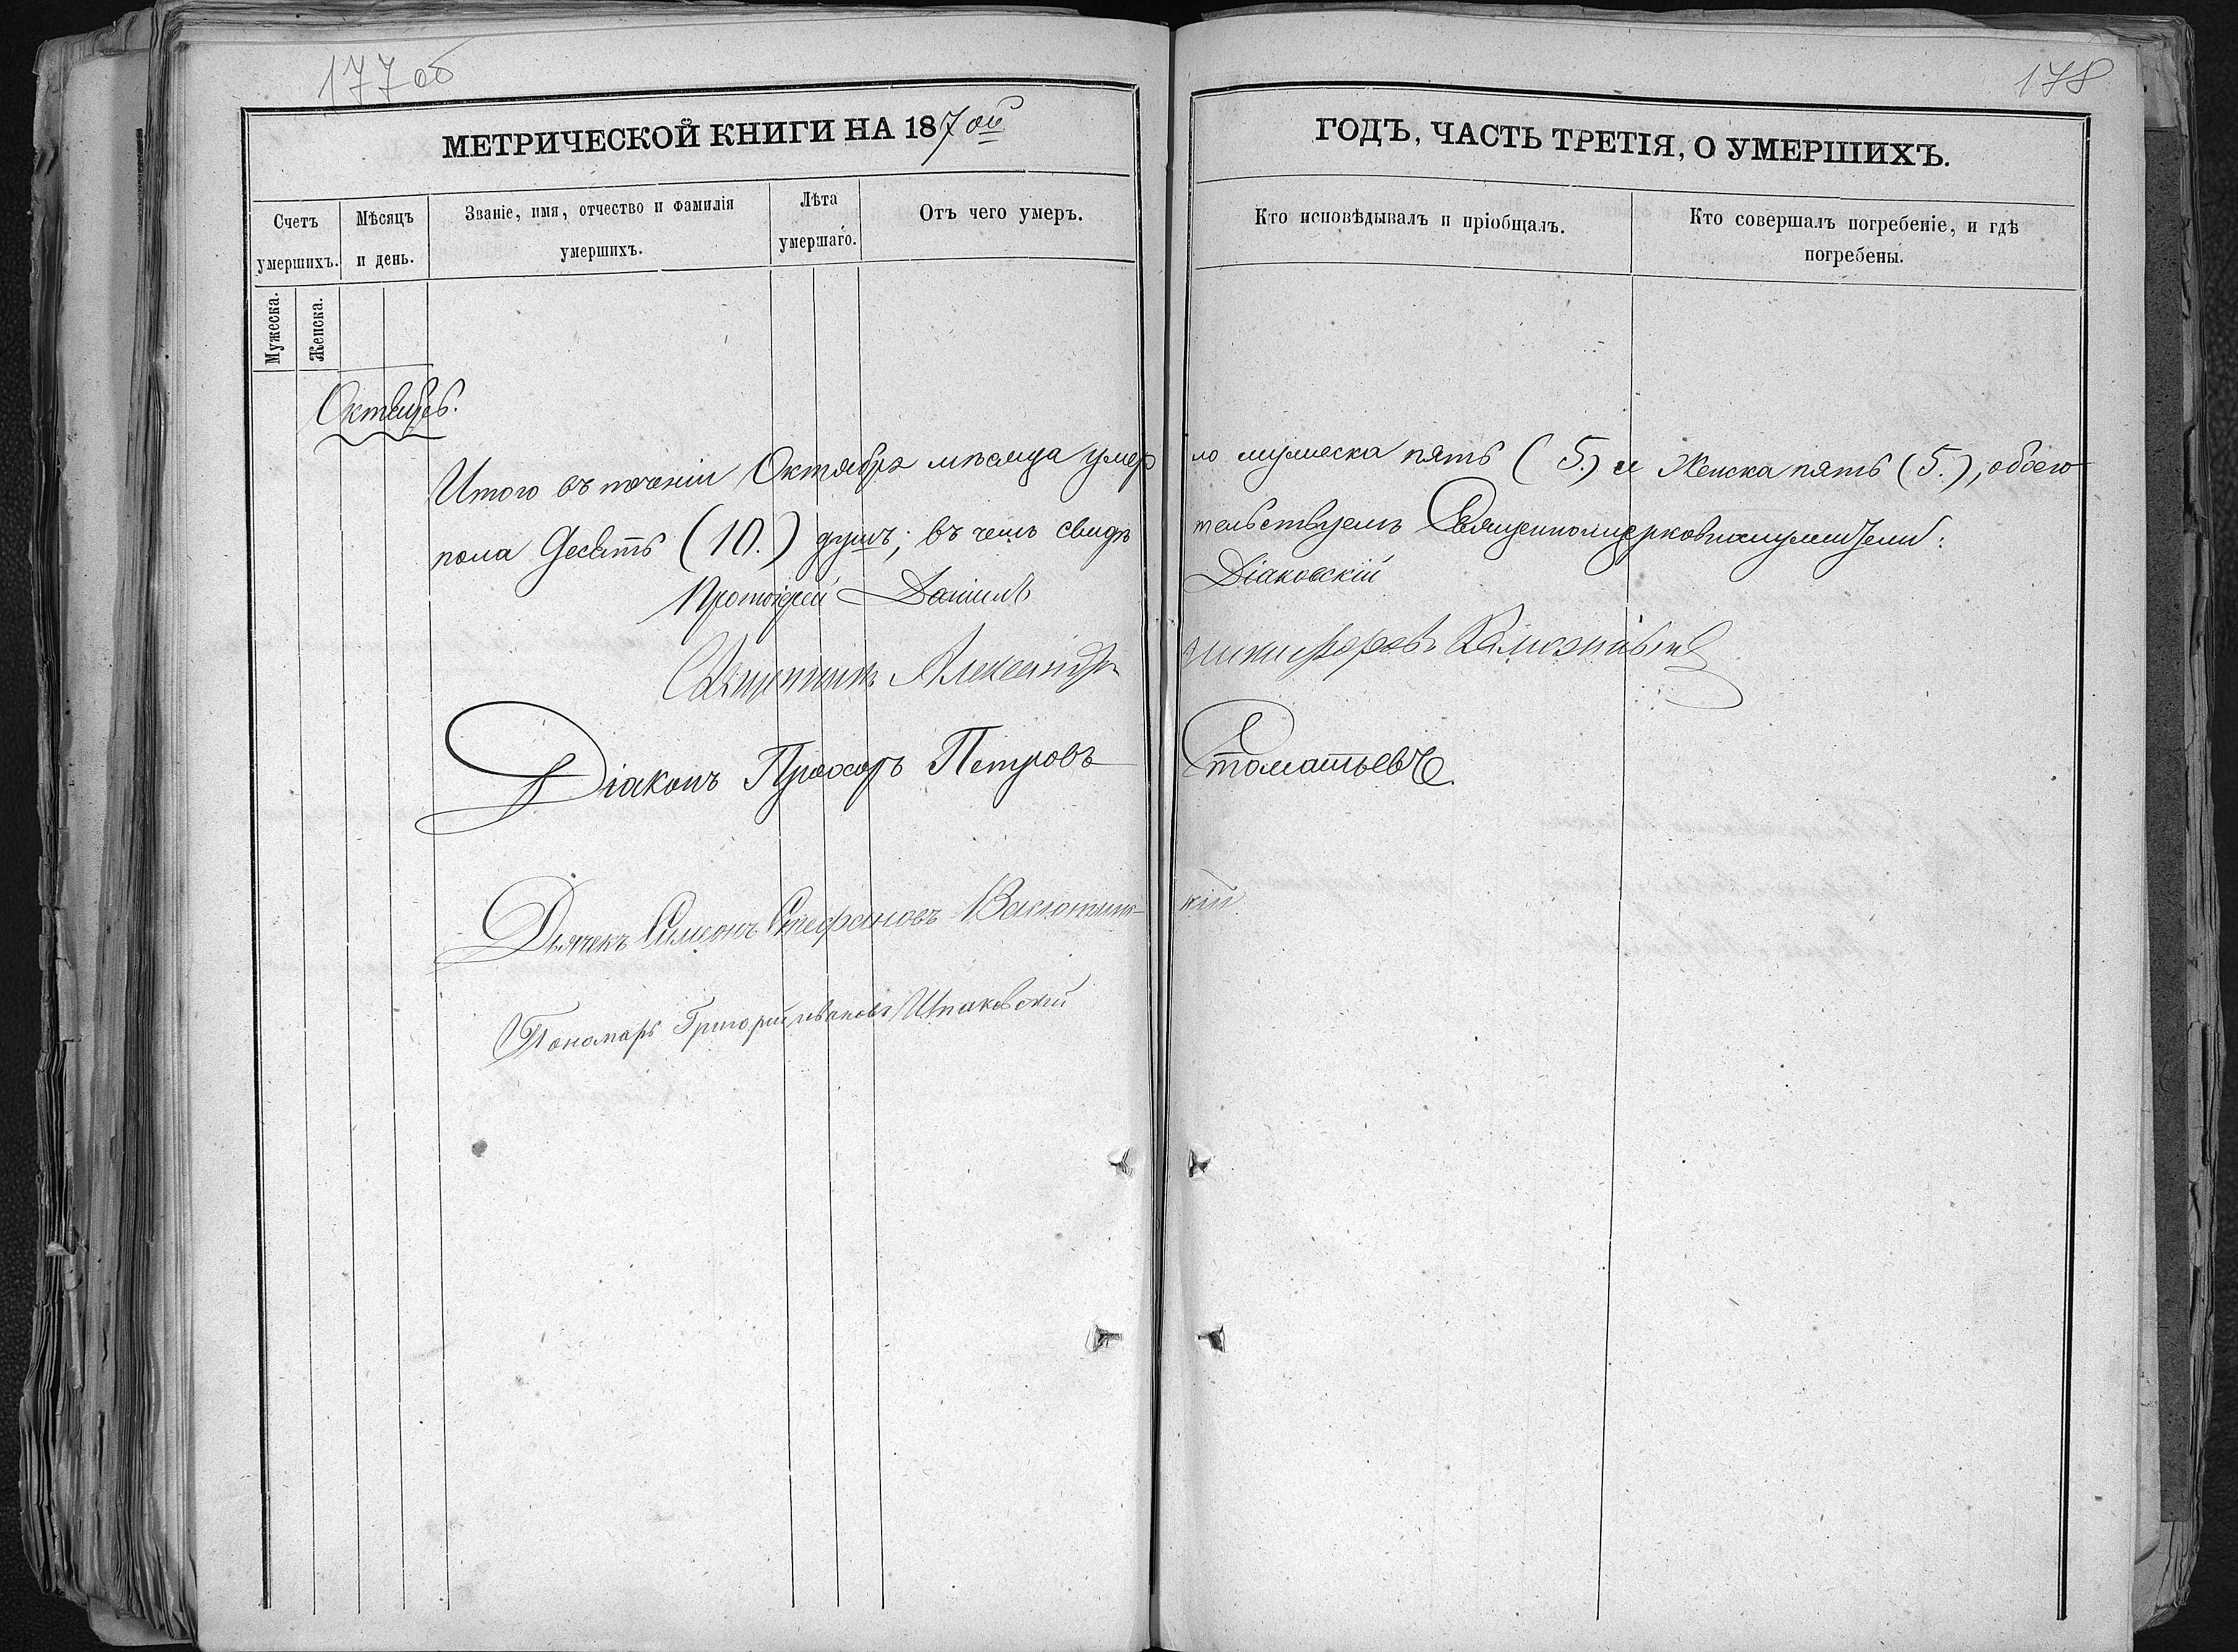 177 об
178
МЕТРИЧЕСКОЙ КНИГИ НА 187ой ГОДЪ, ЧАСТЬ ТРЕТІЯ, О УМЕРШИХЪ.
Счетъ умершихъ.
Мужеска.
Женска.
Мѣсяцъ и день.
Званіе, имя, отчество и фамилія умершихъ.
Лѣта умершаго.
Отъ чего умеръ.
Кто исповѣдывалъ и пріобщалъ.
Кто совершалъ погребеніе, и гдѣ погребены.
Октябрь.
Итого въ теченіи Октября мѣсяца умерло мужеска пять (5.) и Женска пять (5.), обоего
пола Десять (10.) душъ; въ чемъ свидѣтельствуемъ Священноцерковнослужители:
Протоіерей Даніилъ Діаковскій
Священникъ Александръ Никифоровъ
Діаконъ Прохоръ Петровъ
Дьячекъ Симеонъ Стефановъ
Пономарь Григорій Ивановъ Шпаковскій